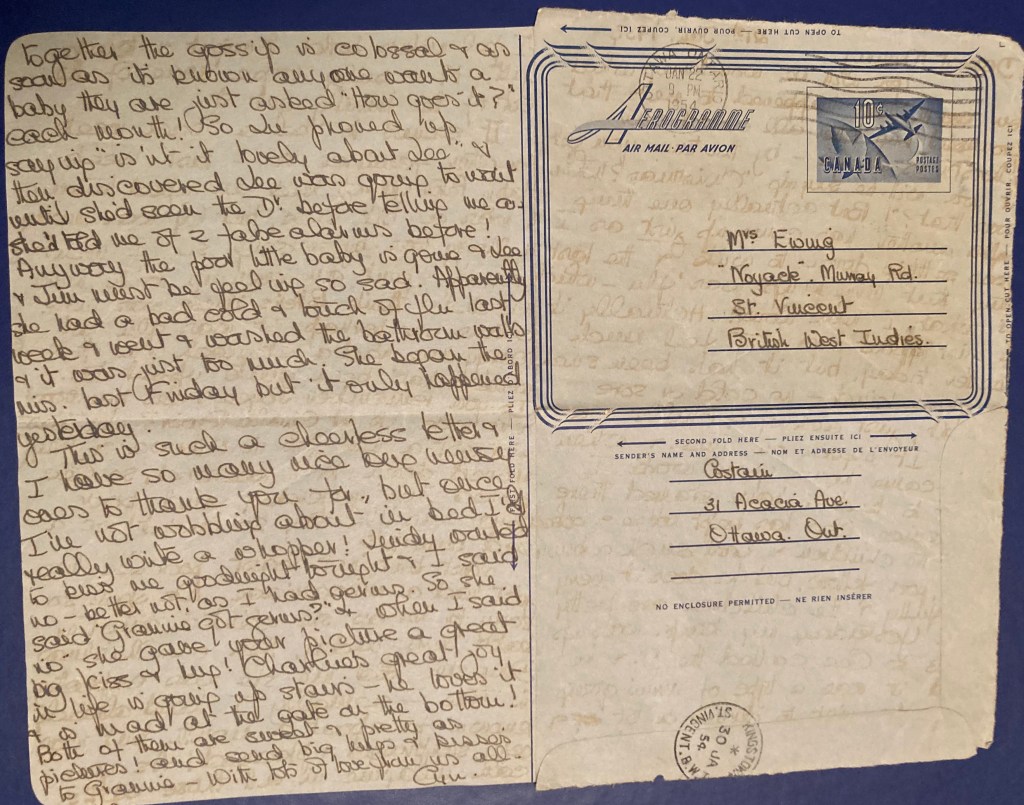 together the gossip is colossal & as
soon as it's known anyone wants a
baby they are just asked "How goes it?"
each month! So Lu phoned up
saying "isn't it lovely about Lee" &
then discovered Lee was going to wait
until she'd seen the Dr. before telling me as
she'd told me of 2 false alarms before!
Anyway the poor little baby is gone & Lee
& Jim must be feeling so sad. Apparently
she had a bad cold & touch of flu last
week & went & washed the bathroom walls
& it was just too much. She began the
mis. last Friday but it only happened
yesterday.
This is such a cheerless letter &
I have so many nice long newsy
ones to thank you for, but once
I'm not wobbling about in bed I'll
really write a whopper! Wendy wanted
to kiss me goodnight tonight & I said
no - better not, as I had germs. So she
said "Grannie got germs?" & when I said
"no" she gave your picture a great
big kiss & hug! Charlie's great joy
in life is going up stairs - he loves it
& is mad at the gate on the bottom!
Both of them are sweet & pretty as
pictures! and send big hugs & kisses
to Grannie - With lots of love from us all.
TO OPEN CUT HERE — POUR OUVRIR, COUPEZ ICI
OTTAWA ONTARIO
JAN 22
9 PM
1954
AEROGRAMME
AIR MAIL · PAR AVION
10¢
CANADA
POSTAGE
POSTES
Mrs Ewing
"Noyack" Murray Rd.
St. Vincent
British West Indies.
TO OPEN CUT HERE — POUR OUVRIR, COUPEZ ICI
FIRST FOLD HERE — PLIEZ D'ABORD ICI
SECOND FOLD HERE — PLIEZ ENSUITE ICI
SENDER'S NAME AND ADDRESS — NOM ET ADRESSE DE L'ENVOYEUR
Costain
31 Acacia Ave.
Ottawa. Ont.
NO ENCLOSURE PERMITTED — NE RIEN INSÉRER
KINGSTOWN
30 JA
54
ST. VINCENT. B.W.I.